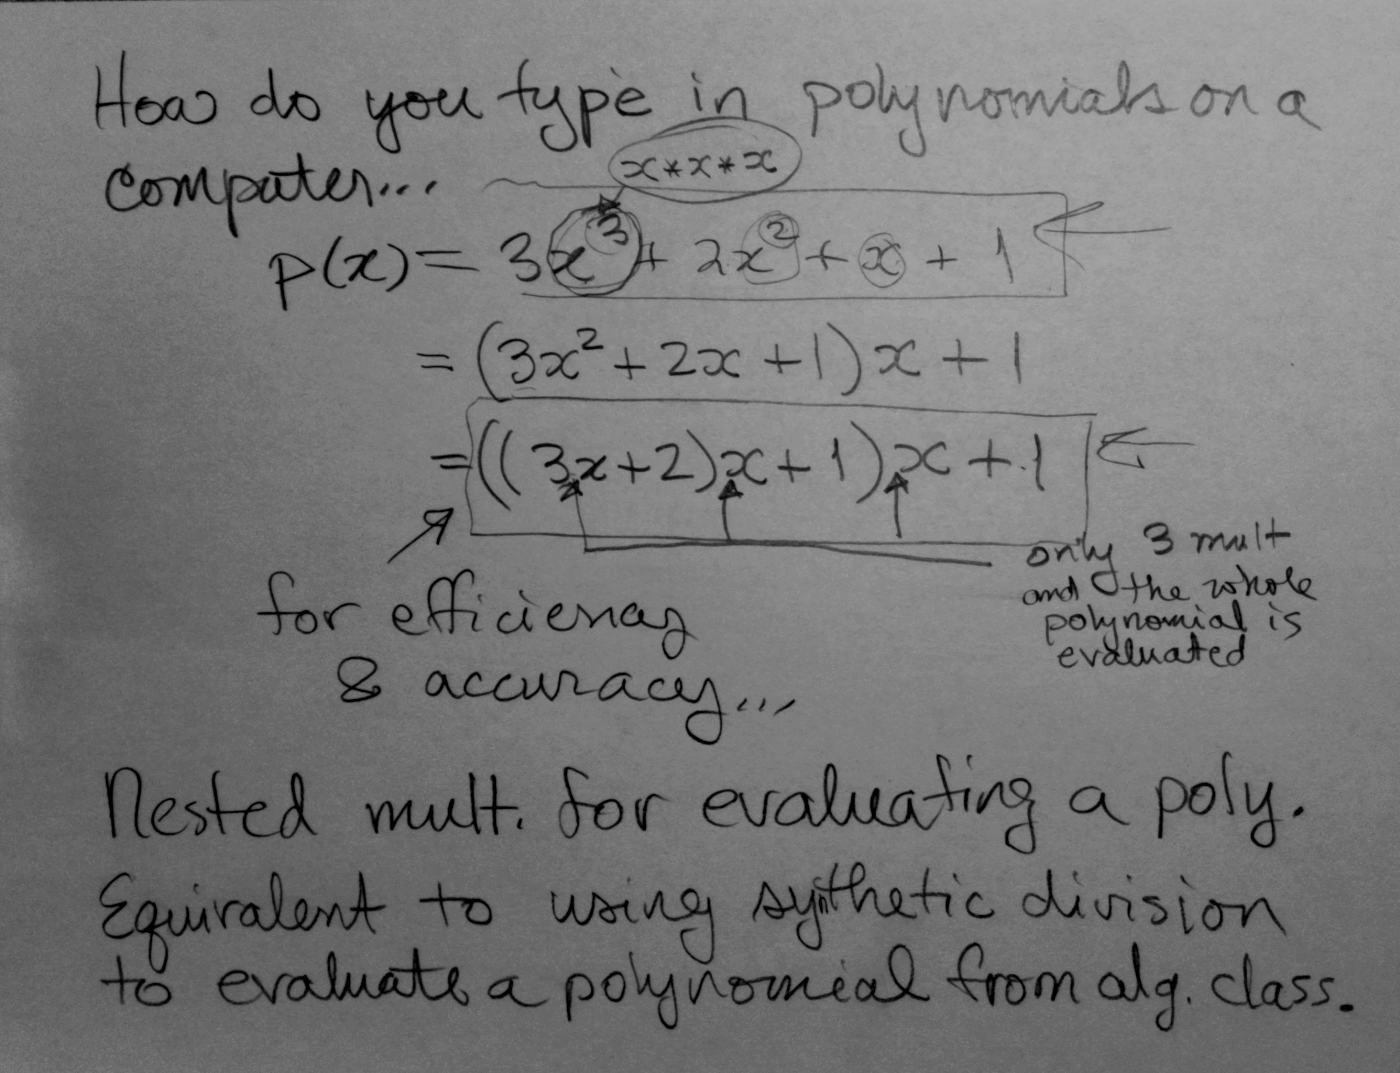 How do you type in polynomials on a
computer...
x*x*x
p(x) = 3x³ + 2x² + x + 1
= (3x² + 2x + 1) x + 1
= ((3x+2)x + 1)x + 1
only 3 mult
and the whole
polynomial is
evaluated
for efficiency
& accuracy...
Nested mult. for evaluating a poly.
Equivalent to using synthetic division
to evaluate a polynomial from alg. class.